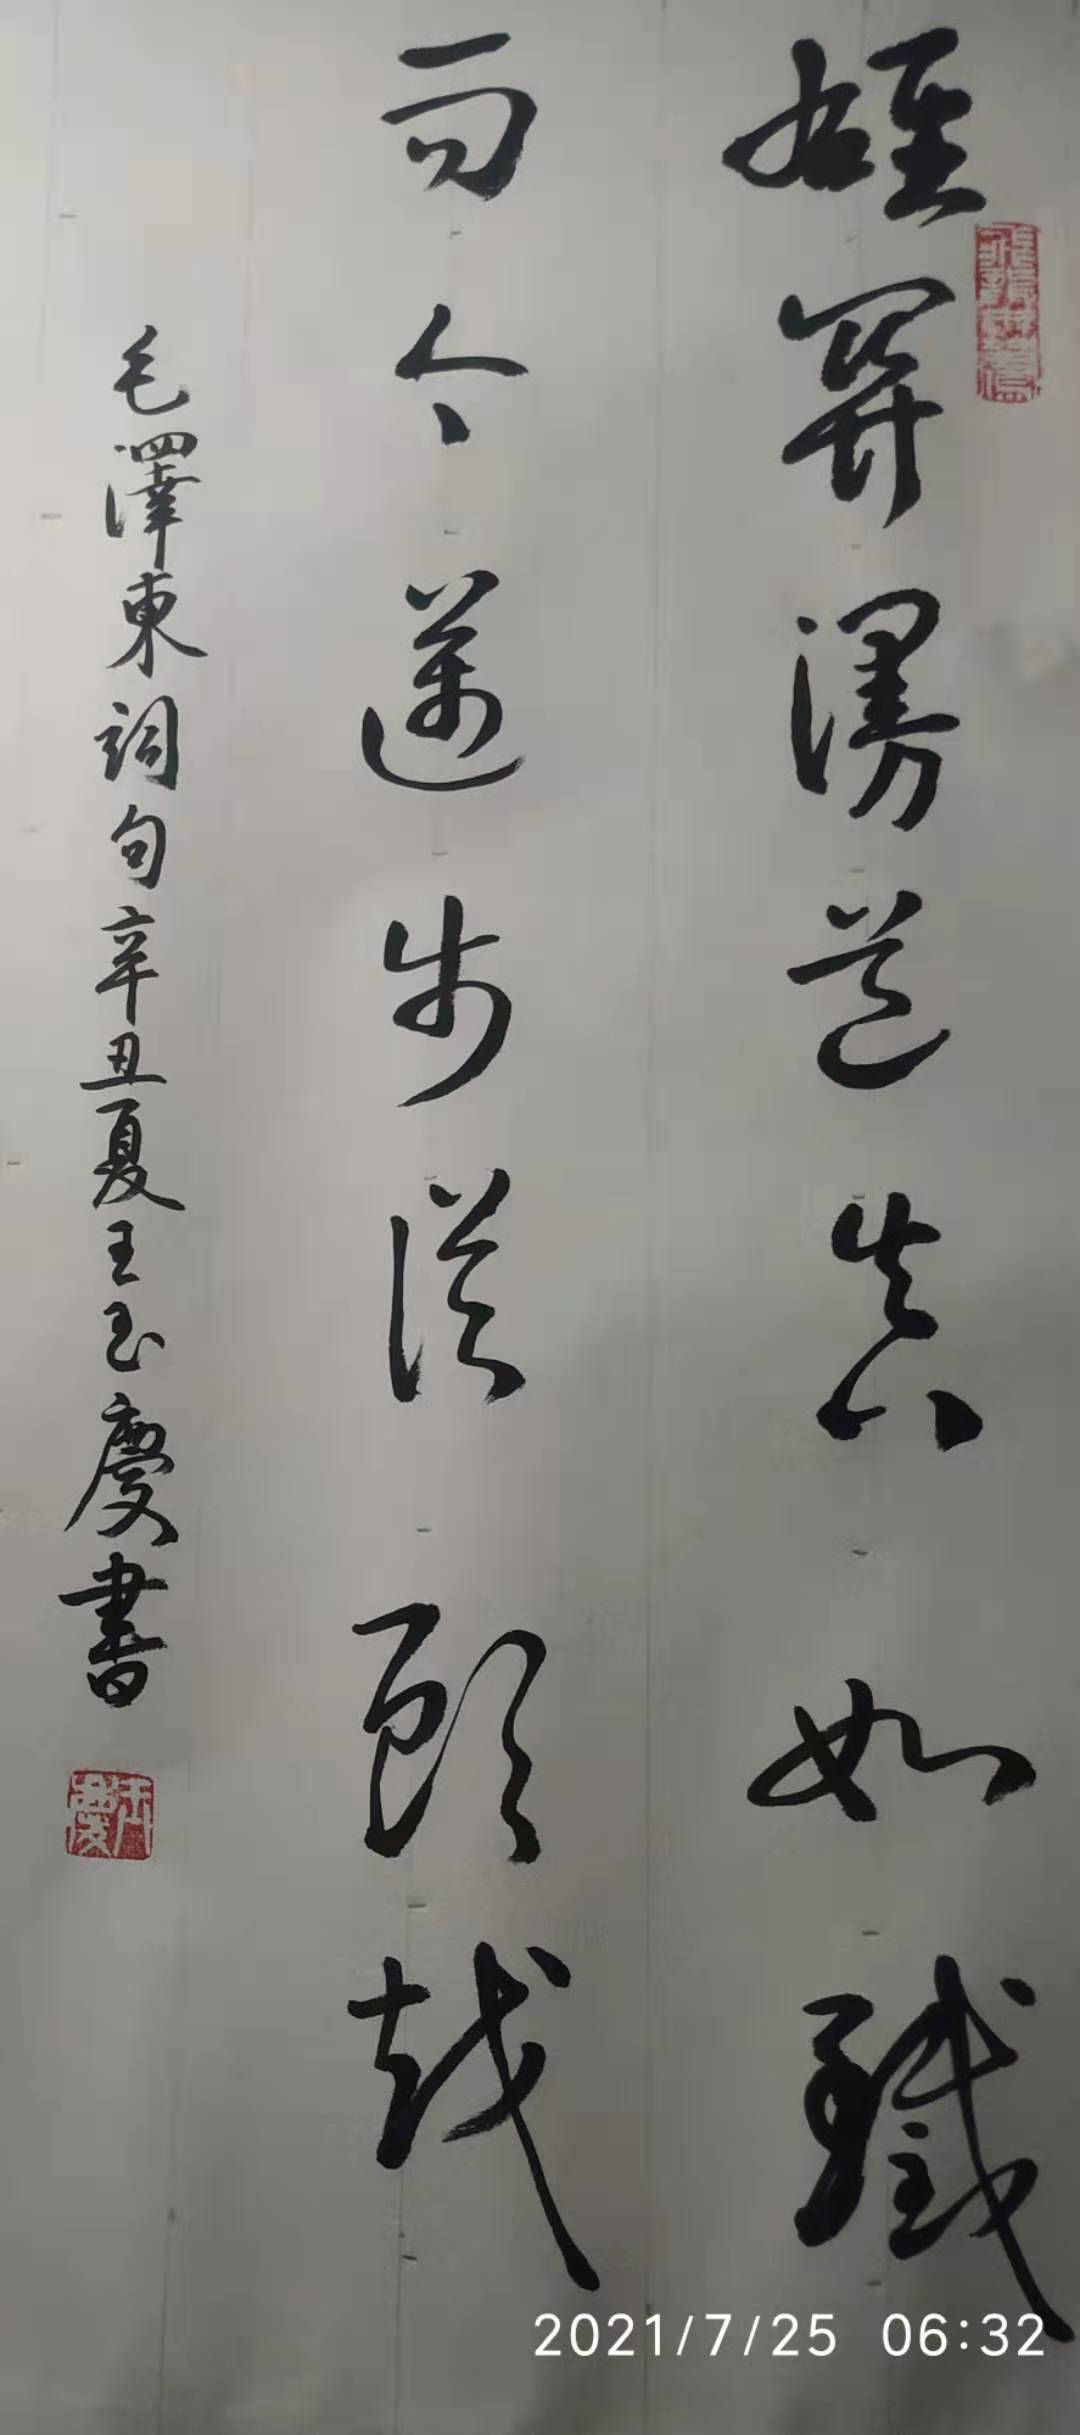 雄關漫道真如鐵
而今邁步從頭越
毛澤東詞句辛丑夏王玉慶書
玉慶
2021/7/25 06:32